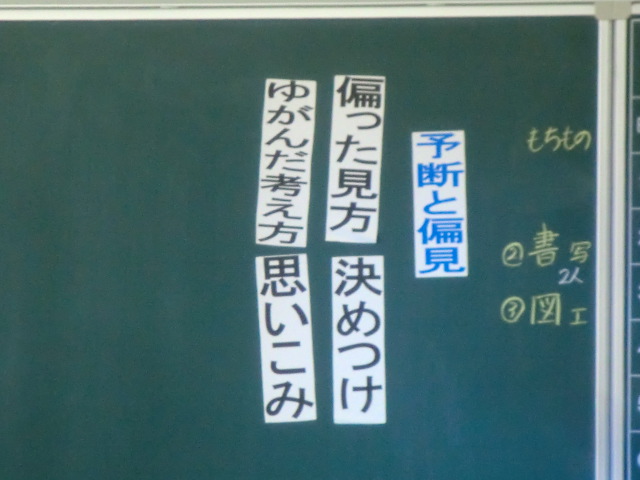 もちもの
②書写
2人
③図工
予断と偏見
偏った見方
決めつけ
ゆがんだ考え方
思いこみ